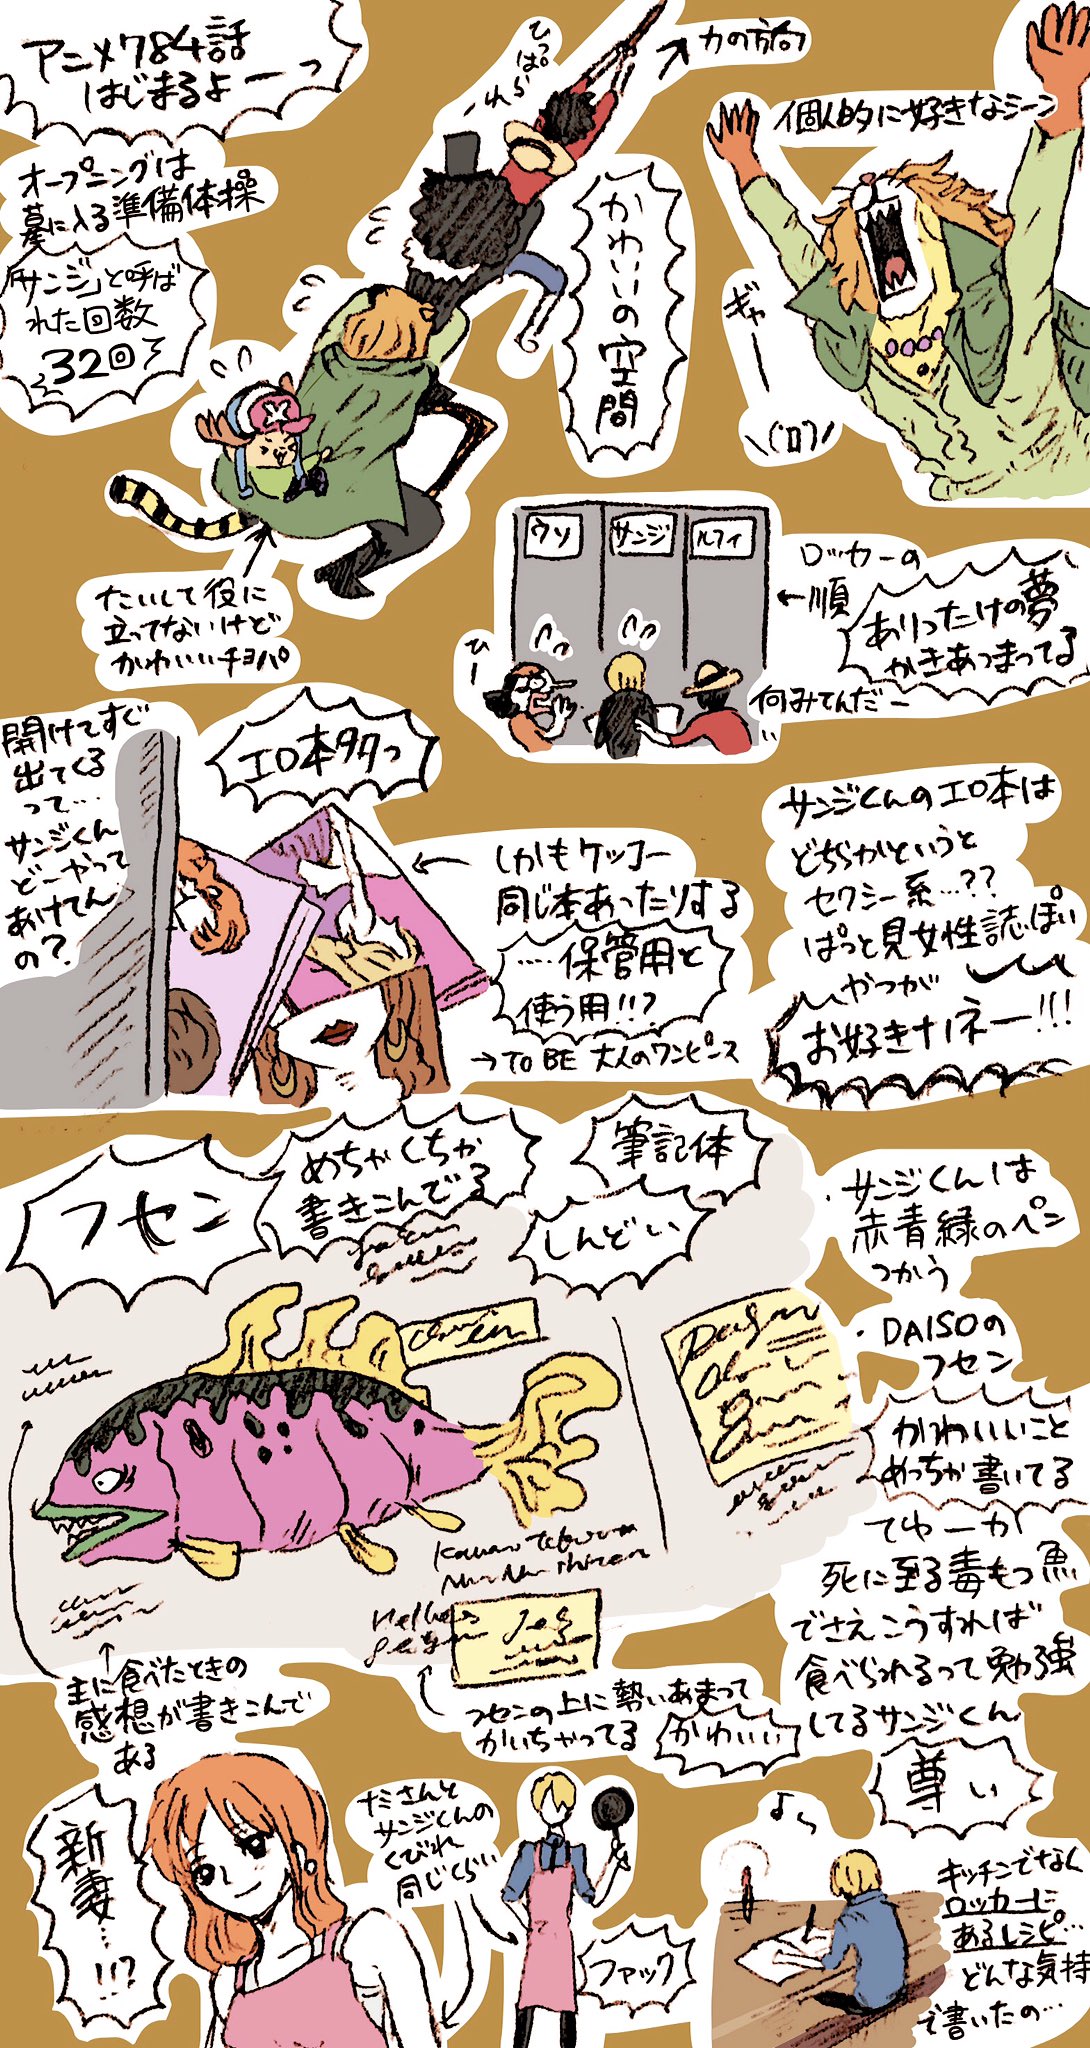 アニメ784話
はじまるよーっ
オープニングは
墓に入る準備体操
「サンジ」と呼ば
れた回数
32回
ひっぱ。
られ
力の方向
かわいいの空間
個人的に好きなシーン
ギャー
\(ロ)/
たいして役に
立ってないけど
かわいいチョパ
ウソ
サンジ
ルフィ
ロッカーの
←順
ありったけの夢
かきあつまってる
ひー
何みてんだー
開けてすぐ
出てくる
って…
サンジくん
どーやって
あけてん
の?
エロ本タワっ
←しかもケッコー
同じ本あったりする
……保管用と
使う用!!?
→TO BE 大人のワンピース
サンジくんのエロ本は
どちらかというと
セクシー系…??
ぱっと見女性誌っぽい
やつが
お好きナノネー!!!
フセン
めちゃくちゃ
書きこんでる
筆記体
しんどい
・サンジくんは
赤青緑のペン
つかう
・DAISOの
フセン
かわいいこと
めっちゃ書いてる
てゆーか
死に至る毒もつ魚
でさえこうすれば
食べられるって勉強
してるサンジくん
尊い
主に食べたときの
感想が書きこんで
ある
フセンの上に勢いあまって
かいちゃってる
かわいい
新妻…!!?
ナミさんと
サンジくんの
くびれ
同じくらい
ファック
よっ
キッチンでなく
ロッカーに
あるレシピ…
どんな気持
で書いたの…